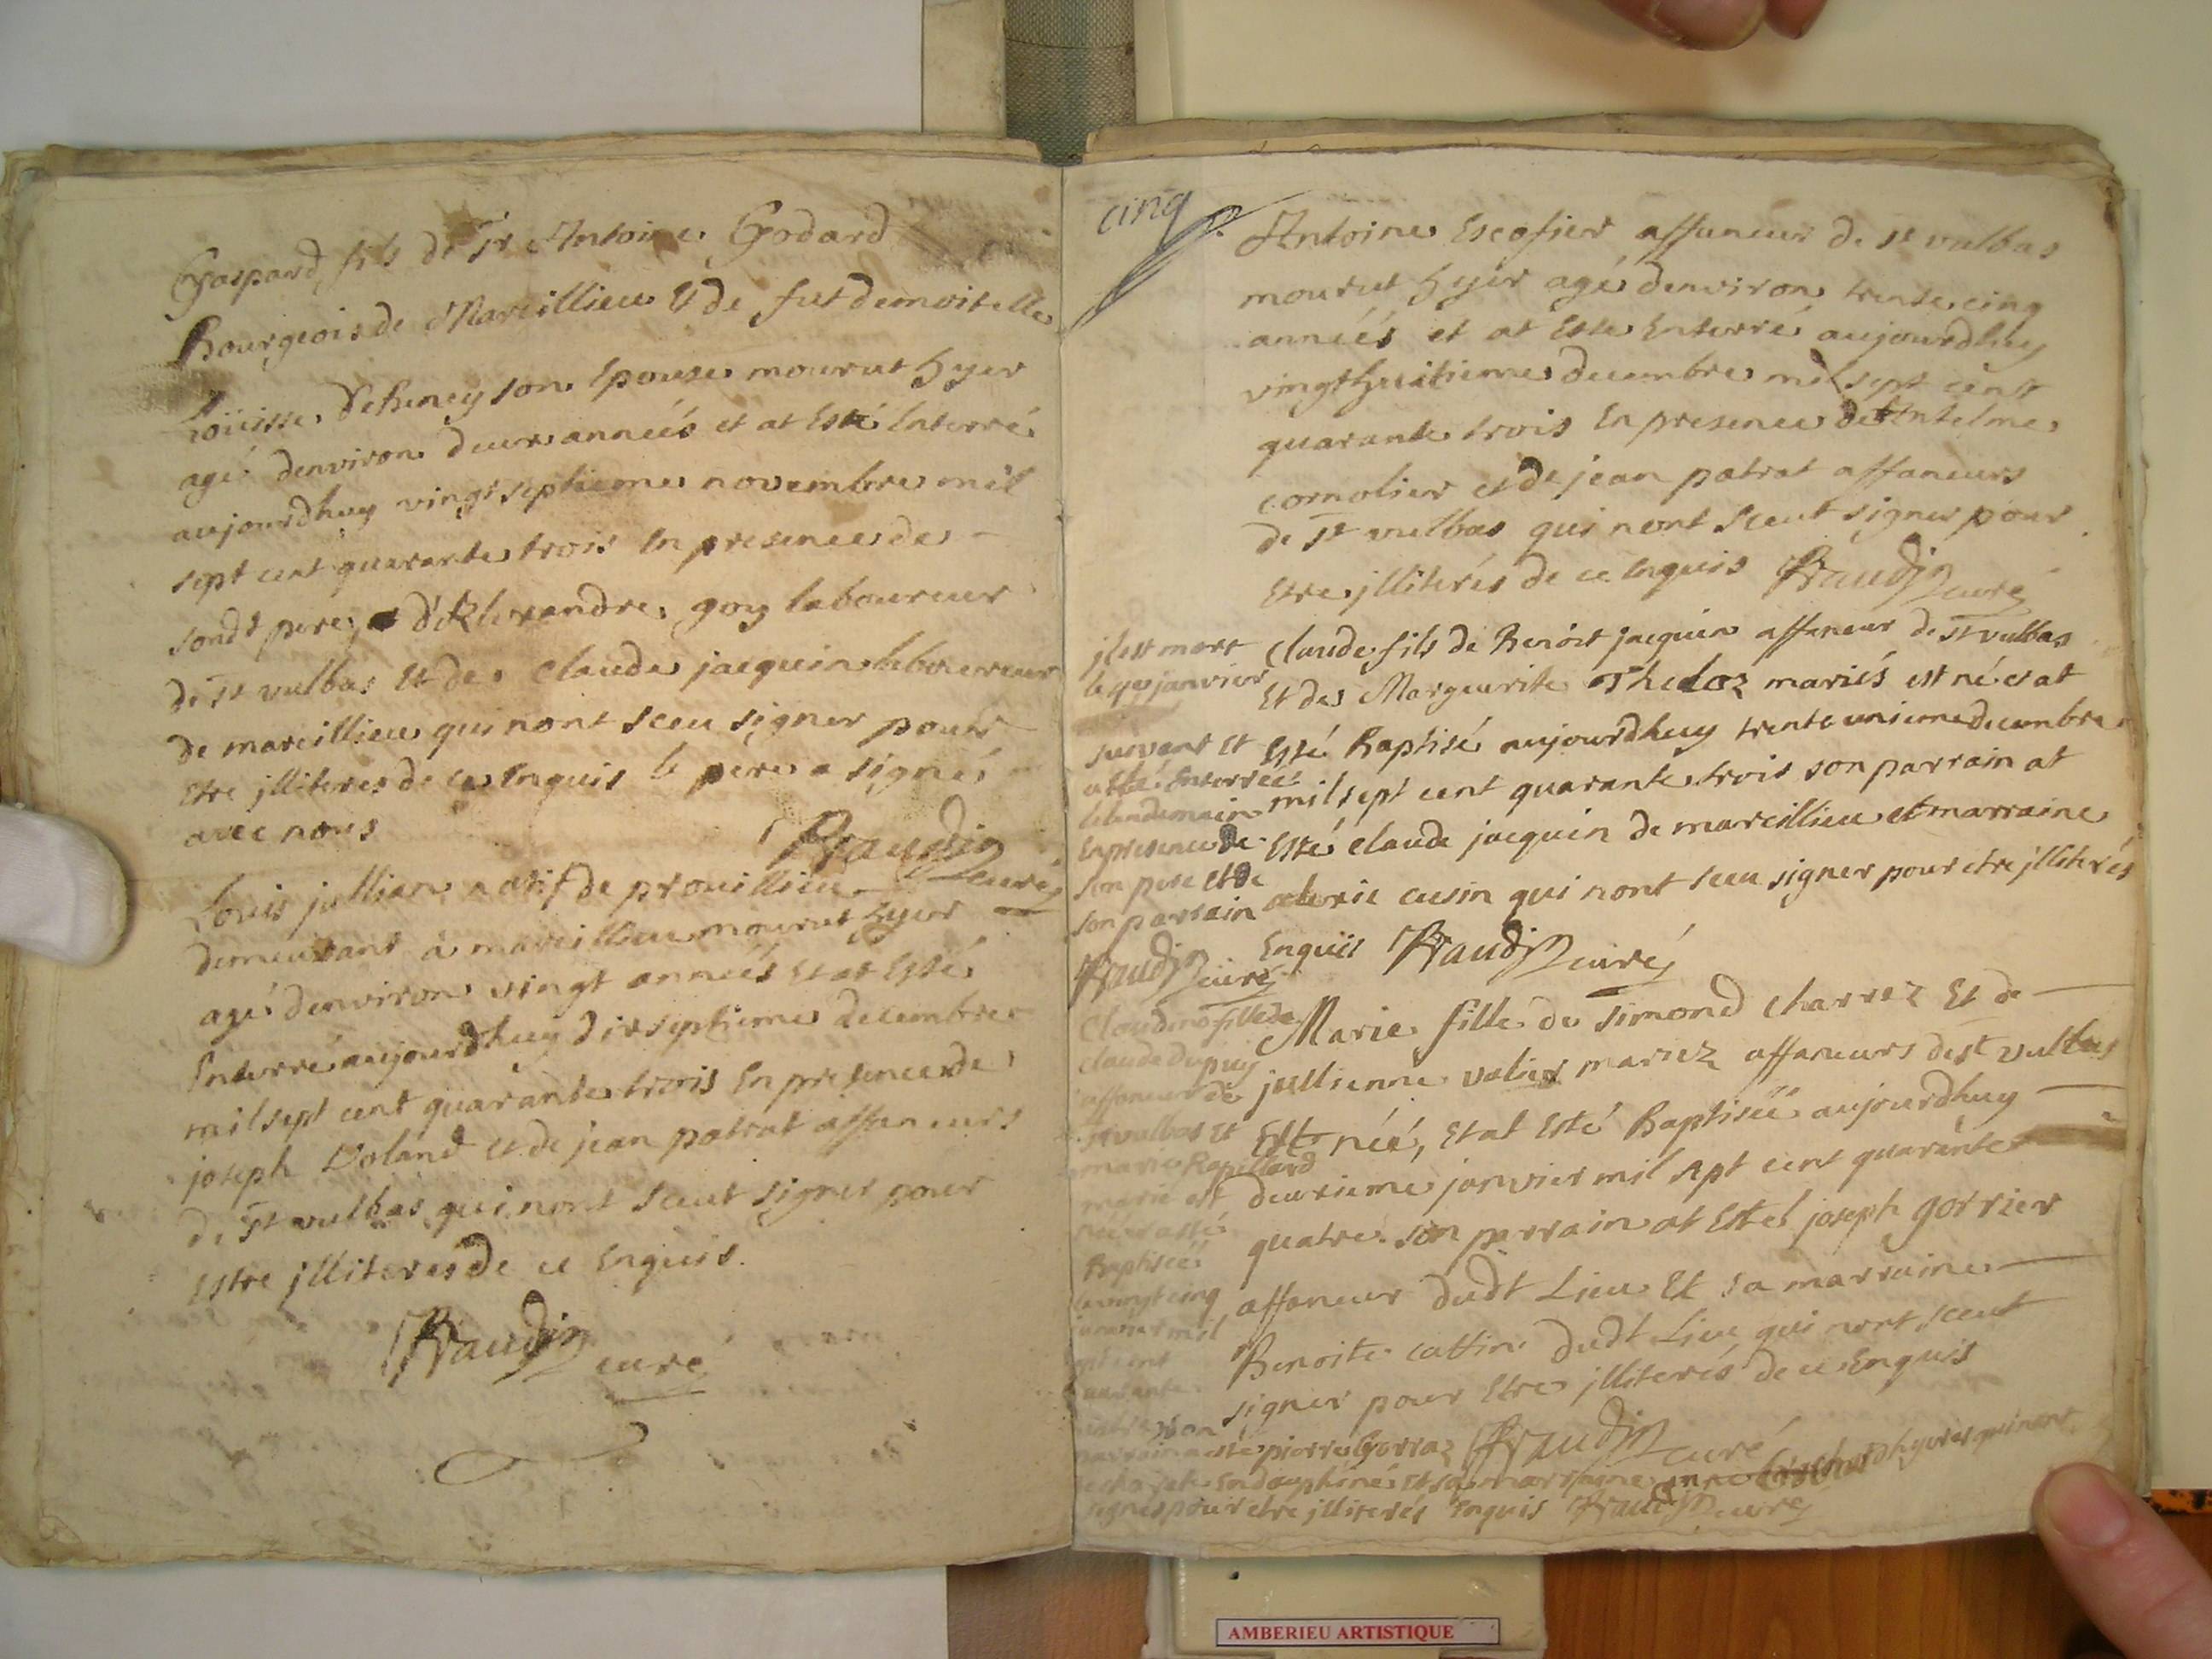 Gaspard fils de Sr Antoine Godard
Bourgeois de Marcillieu Et de fut demoiselle
Loüisse son Epouse mourut hyer
agé denviron deux années et at Esté Enterré
aujourdhuy vingt septieme novembre mil
sept cent quarante trois En presence de
sondt pere, d'Alexandre goy laboureur
de St vulbas Et de Claude jacquin laboureur
de marcillieu qui nont sceu signer pour
Etre jlliteres de ce Enquis le pere a signé
avec nous
curé
Louis jullian natif de prouillieu
demeurant a marcillieu mourut hyer
agé denviron vingt années Et at Esté
Enterré aujourdhuy dixseptieme decembre
mil sept cent quarante trois En presence de
joseph Voland et de jean patrat affaneurs
de St vulbas qui nont sceut signer pour
Estre jlliteres de ce Enquis.
curé
cinq
Antoine Escofier affaneur de St vulbas
mourut hyer agé denviron trente cinq
années et at Esté Enterré aujourdhuy
vingthuitieme decembre mil sept cent
quarante trois En presence de Antelme
cornolier et de jean patrat affaneurs
de St vulbas qui nont sceut signer pour
Etre jlliterés de ce Enquis curé
jl est mort
le janvier
suivant Et
a esté Enterré
le lendemain
En presence de
son pere et de
son parrain
curé
Claude fils de Benoit jacquin affaneur de St vulbas
Et de Marguerite Theloz mariés est né et at
Esté Baptisé aujourdhuy trente unieme decembre
mil sept cent quarante trois son parrain at
Esté claude jacquin de marcillieu et marraine
cusin qui nont sceu signer pour etre jlliterés
Enquis curé
Marie fille de Simond Charvez Et de
jullienne valier mariez affaneurs de St vulbas
Est née, Et at Esté Baptisée aujourdhuy
deuxieme janvier mil sept cent quarante
quatre son parrain at Esté joseph gorrier
affaneur dudt Lieu Et sa marraine
Benoite cattin dudt Lieu qui nont sceut
signer pour Etre jlliterés de ce Enquis
curé
Claudine fille de
claude dupuy
affaneur de
St vulbas Et
marie Rapillard
mariés est
née et a esté
Baptisée
le vingt cinq
janvier mil
sept cent
quarante
quatre son
parrain a esté pierre Gorraz
En dauphiné et sa marraine qui nont
signer pour etre jlliterés Enquis curé
AMBERIEU ARTISTIQUE